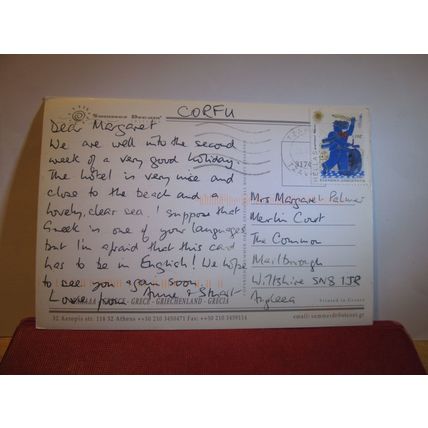 CORFU
Summer Dream
Dear Margaret
We are well into the second
week of a very good holiday.
The hotel is very nice and
close to the beach and a
lovely, clear sea. I suppose that
Greek is one of your languages
but I'm afraid that this card
has to be in English! We hope
to see you again soon
Love from Anne & Stuart
Mrs Margaret Palmer
Merlin Court
The Common
Marlborough
Wiltshire SN8 1JR
GREECE - GRIECHENLAND - GRECIA
Printed in Greece
32 Aesopio str. 116 32 Athens ++30 210 3450471 Fax ++30 210 3459114